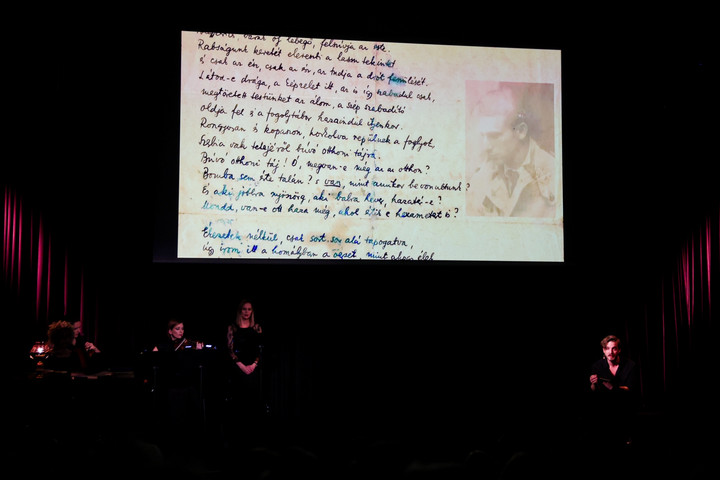 barakk oly lebegő, felszívja az este.
Rabságunk keretét elereszti a lassu tekintet
és csak az ész, csak az ész, az tudja a drót feszülését.
Látod-e drága, a képzelet itt, az is így szabadul csak,
megtöretett testünket az álom, a szép szabadító
oldja fel s a fogolytábor hazaindul ilyenkor.
Rongyosan és kopaszon, horkolva repülnek a foglyok,
Szerbia vak tetejéről búvó otthoni tájra.
Búvó otthoni táj! Ó, megvan-e még az az otthon?
Bomba sem érte talán? s van, mint amikor bevonultunk?
És aki jobbra nyöszörg, aki balra hever, hazatér-e?
Mondd, van-e ott haza még, ahol értik e hexametert is?
Ékezetek nélkül, csak sort sor alá tapogatva,
úgy irom itt a homályban a verset, mint ahogy élek